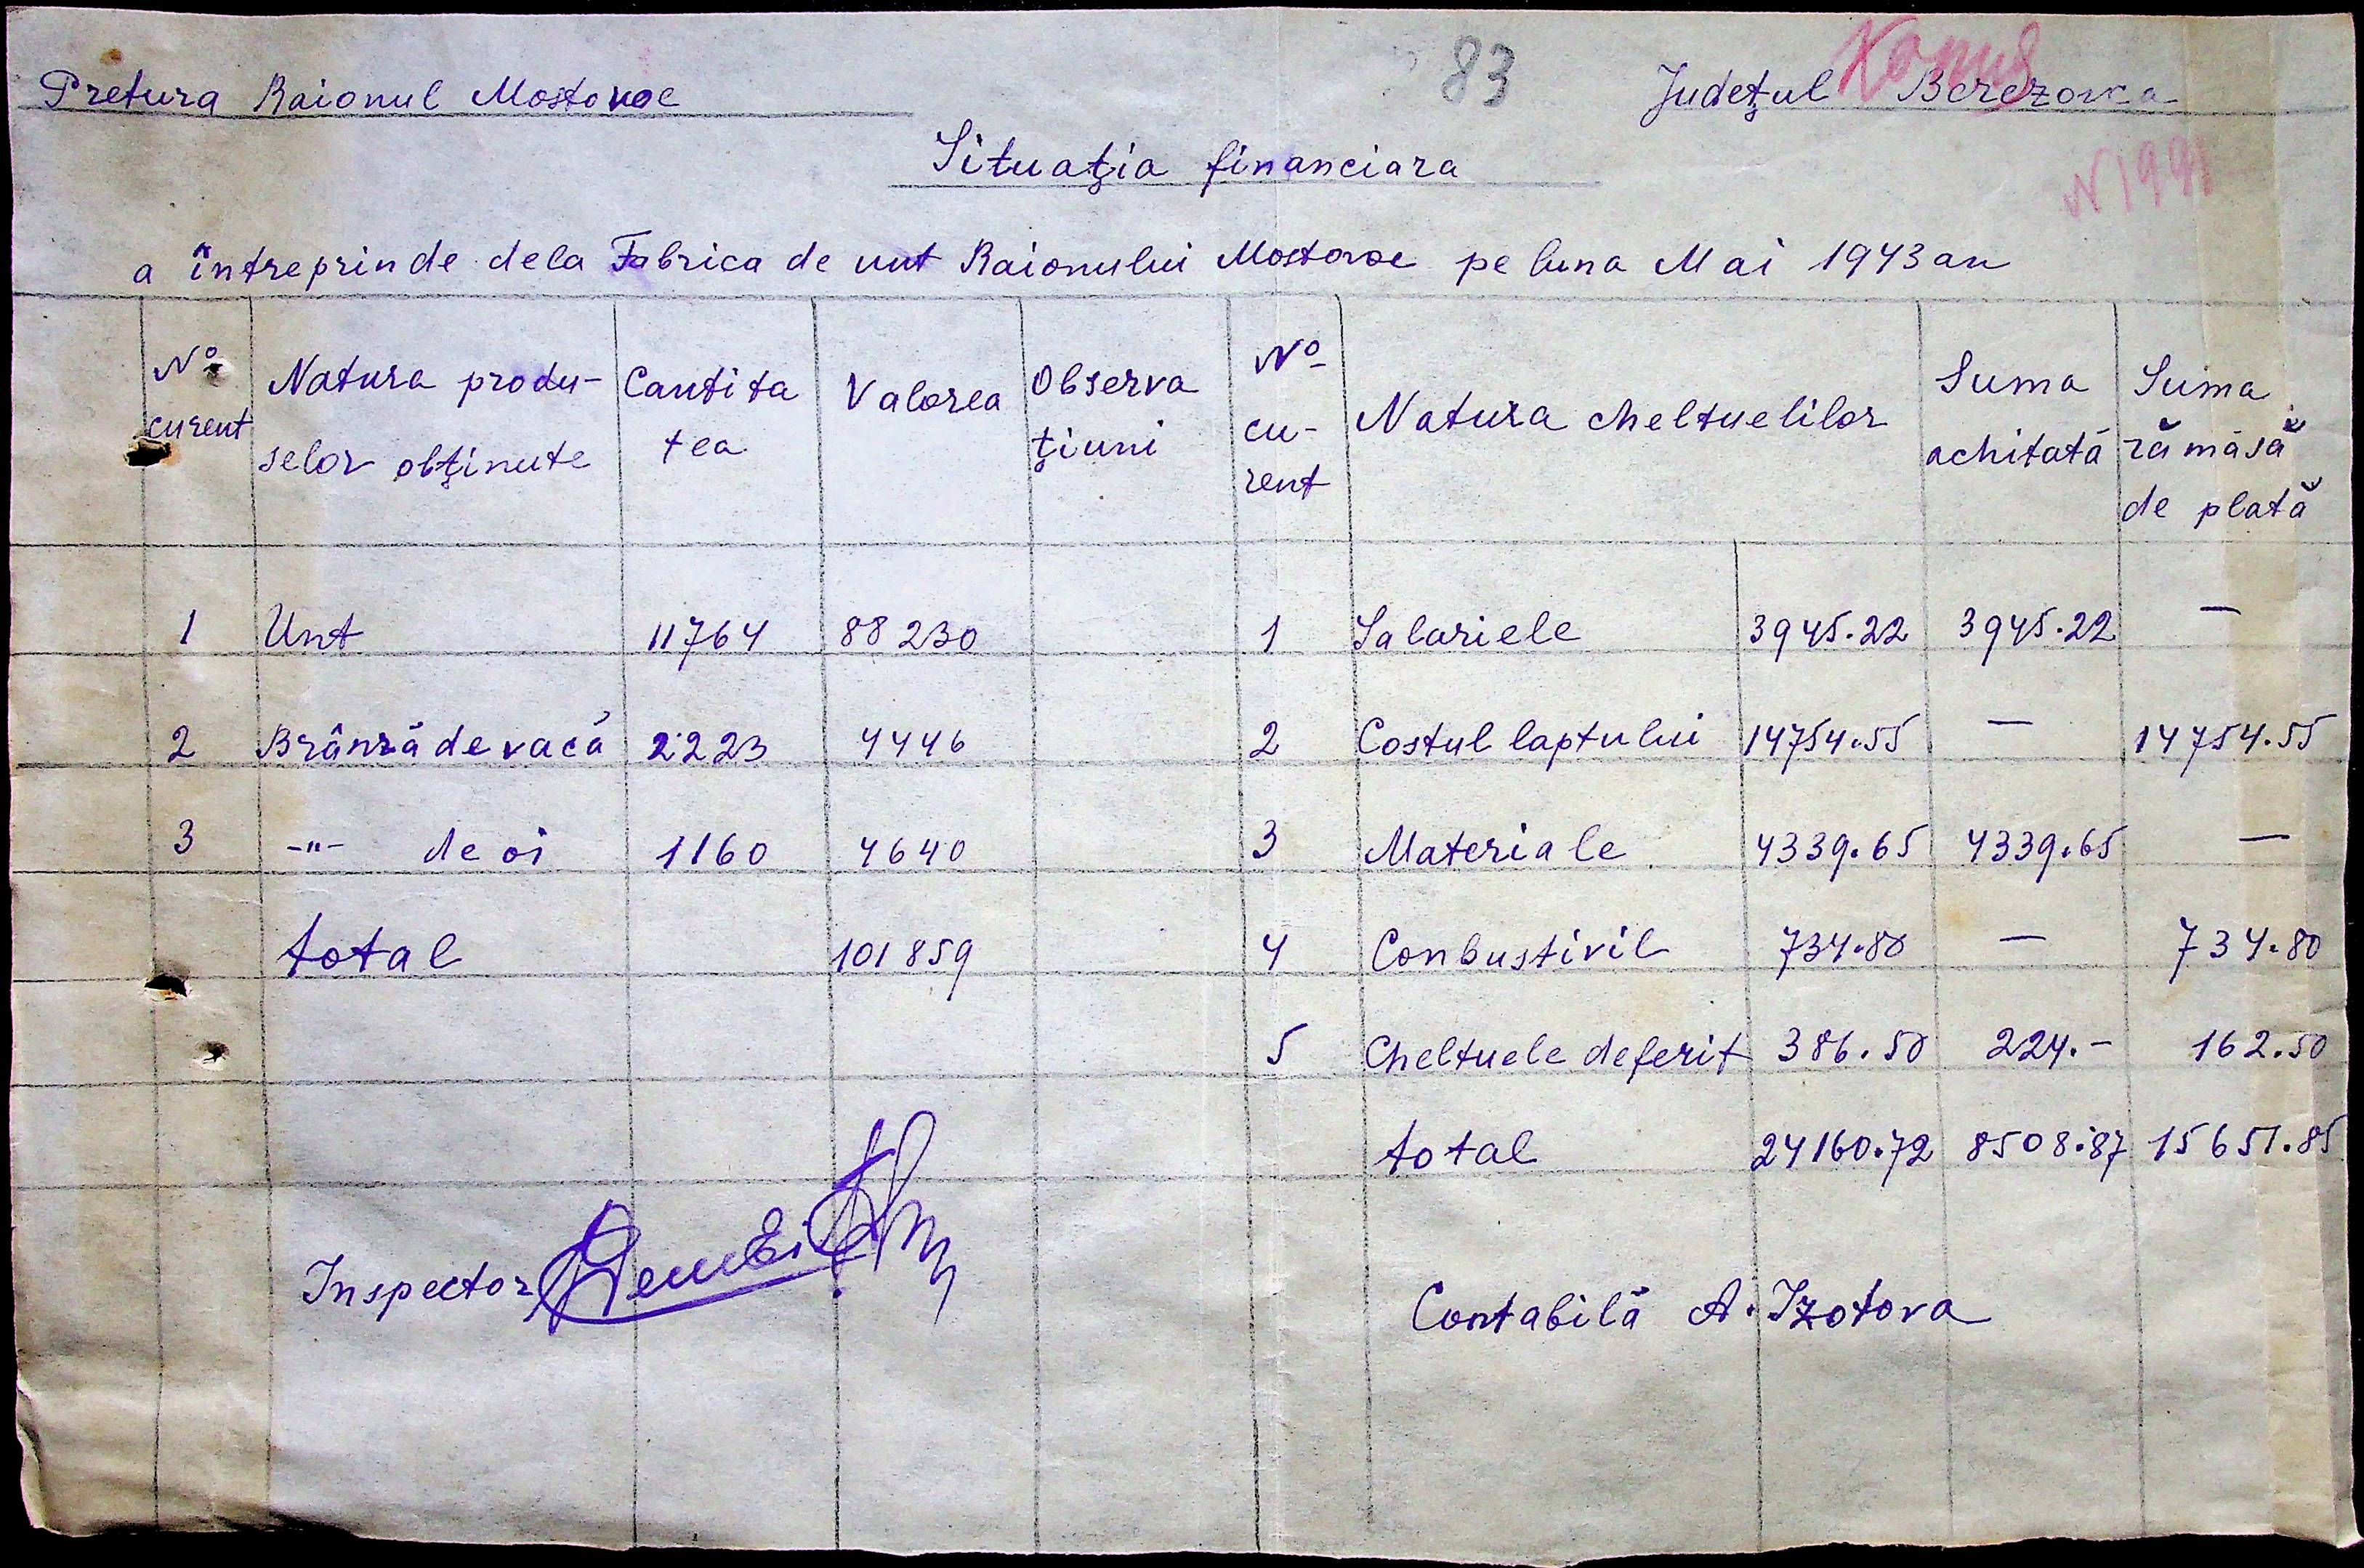 Pretura Raionul Mostovoe
83
Județul Berezovca
Копия
N 1991
Situaţia financiara
a întreprinde dela Fabrica de unt Raionului Mostovoe pe luna Mai 1943 an
Nº curent Natura produ- selor obţinute Cantita tea Valorea Observa ţiuni Nº cu- rent Natura cheltuelilor Suma achitată Suma rămăsă de plată
1 Unt 11764 88230 1 Salariele 3945.22 3945.22 —
2 Brânză de vacă 2223 4446 2 Costul laptului 14754.55 — 14754.55
3 -"- de oi 1160 4640 3 Materiale 4339.65 4339.65 —
total 101859 4 Conbustivil 734.80 — 734.80
5 Cheltuele deferit 386.50 224.- 162.50
total 24160.72 8508.87 15651.85
Inspector
Contabilă A. Izotova